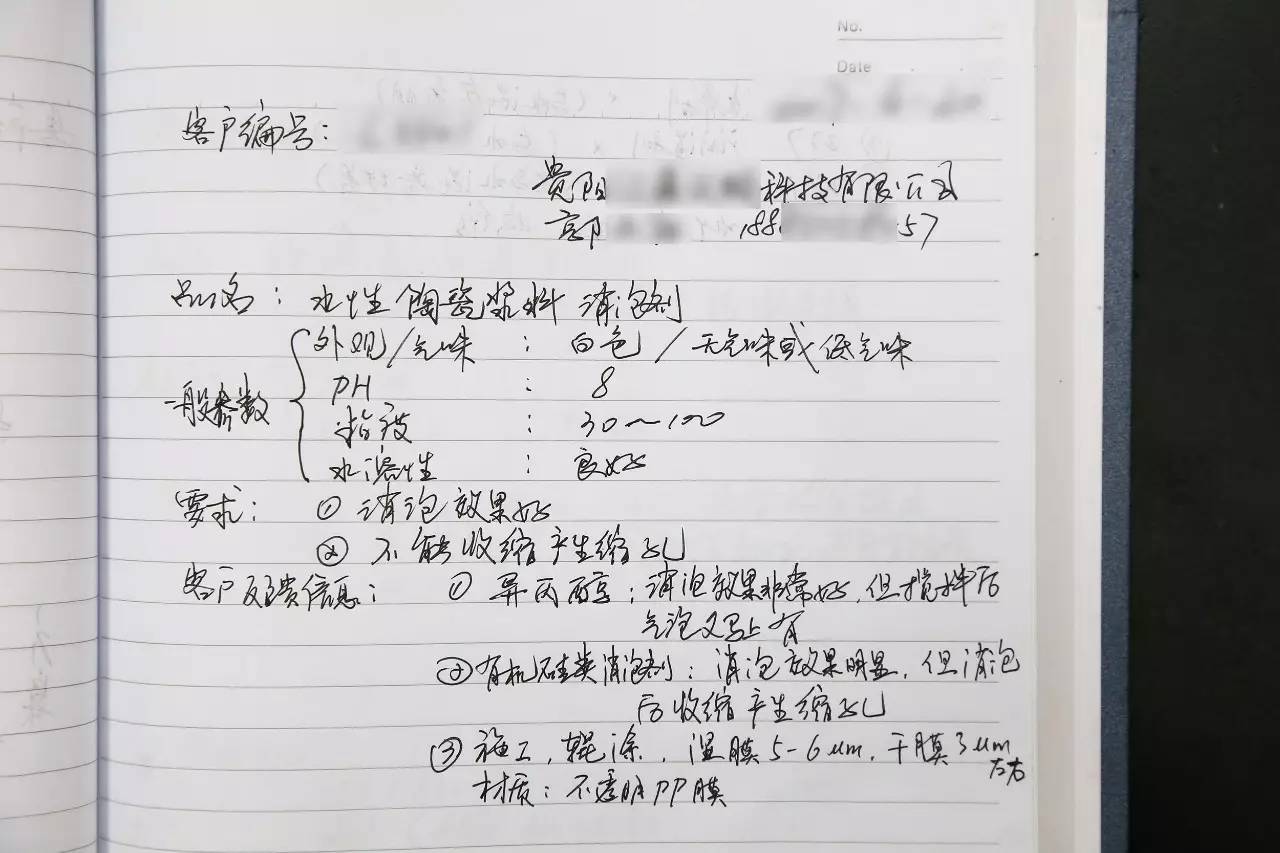 No.
Date
客户编号：
贵阳 科技有限公司
郭 188 57
品名：水性陶瓷浆料 消泡剂
一般参数
外观/气味：白色/无气味或低气味
PH：8
粘度：30～100
水溶性：良好
要求：① 消泡效果好
② 不能收缩产生缩孔
客户反馈信息：① 异丙醇：消泡效果非常好，但搅拌后
气泡又马上有
②有机硅类消泡剂：消泡效果明显，但消泡
后收缩产生缩孔
③ 施工，辊涂，湿膜5-6um，干膜3um
左右
材质：不透明PP膜